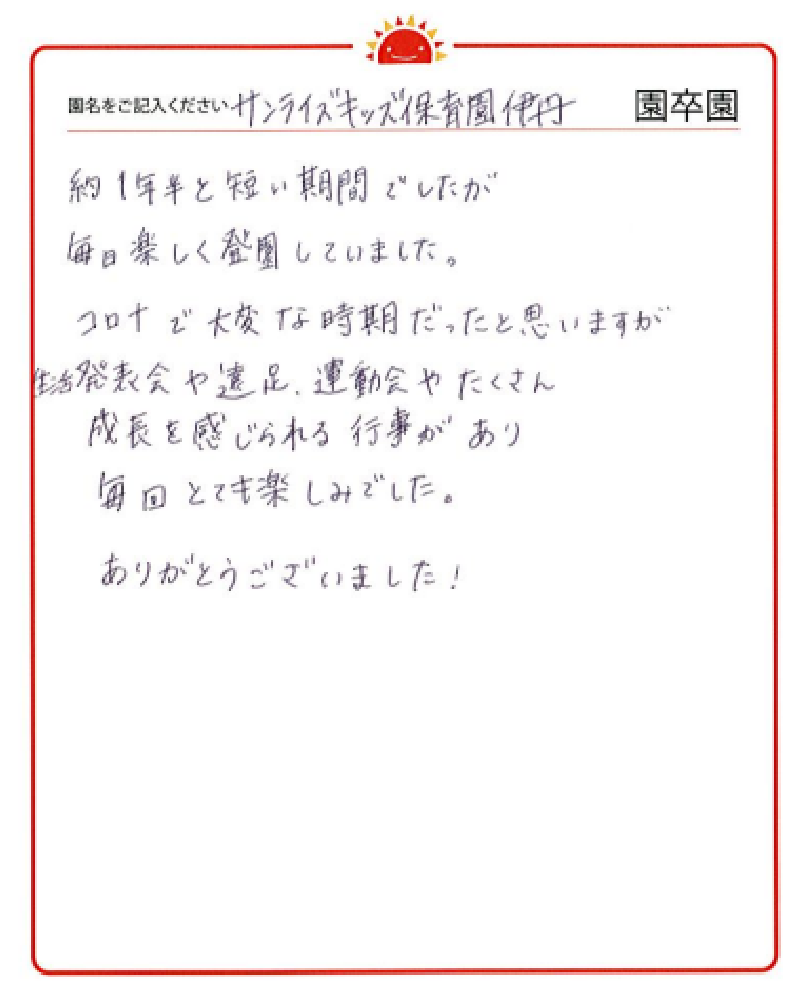 園名をご記入ください サンライズキッズ保育園伊丹 園卒園
約1年半と短い期間でしたが
毎日楽しく登園していました。
コロナで大変な時期だったと思いますが
生活発表会や遠足、運動会やたくさん
成長を感じられる行事があり
毎回とても楽しみでした。
ありがとうございました!